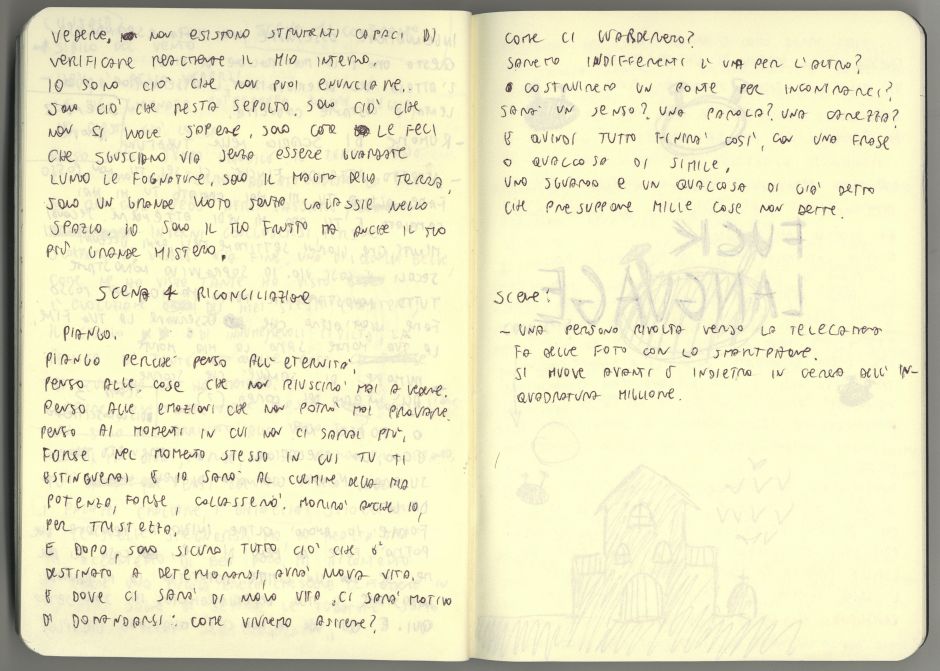 VEDERE. NON ESISTONO STRUMENTI CAPACI DI
VERIFICARE REALMENTE IL MIO INTERNO.
IO SONO CIO' CHE NON PUOI ENUNCIARE.
SONO CIO' CHE RESTA SEPOLTO. SONO CIO' CHE
NON SI VUOLE SAPERE, SONO COME LE FECI
CHE SGUSCIANO VIA SENZA ESSERE GUARDATE
LUNGO LE FOGNATURE, SONO IL MAGMA DELLA TERRA,
SONO UN GRANDE VUOTO SENZA GALASSIE NELLO
SPAZIO. IO SONO IL TUO FRUTTO MA ANCHE IL TUO
PIÙ GRANDE MISTERO.
SCENA 4 RICONCILIAZIONE
PIANGO.
PIANGO PERCHÉ PENSO ALL'ETERNITA',
PENSO ALLE COSE CHE NON RIUSCIRO' MAI A VEDERE.
PENSO ALLE EMOZIONI CHE NON POTRO' MAI PROVARE.
PENSO AI MOMENTI IN CUI NON CI SARAI PIÙ.
FORSE NEL MOMENTO STESSO IN CUI TU TI
ESTINGUERAI E IO SARO' AL CULMINE DELLA MIA
POTENZA, FORSE, COLLASSERO'. MORIRO' ANCHE IO,
PER TRISTEZZA.
E DOPO, SONO SICURA, TUTTO CIO' CHE E'
DESTINATO A DETERIORARSI AVRA' NUOVA VITA.
E DOVE CI SARA' DI NUOVO VITA, CI SARA' MOTIVO
DI DOMANDARSI: COME VIVREMO ASSIEME?
COME CI GUARDEREMO?
SAREMO INDIFFERENTI L'UN PER L'ALTRO?
COSTRUIREMO UN PONTE PER INCONTRARCI?
SARA' UN SENSO? UNA PAROLA? UNA CAREZZA?
E QUINDI TUTTO FINIRA' COSI', CON UNA FRASE
O QUALCOSA DI SIMILE,
UNO SGUARDO E UN QUALCOSA DI GIA' DETTO
CHE PRESUPPONE MILLE COSE NON DETTE.
FUCK
LANGUAGE
SCENE:
- UNA PERSONA RIVOLTA VERSO LA TELECAMERA
FA DELLE FOTO CON LO SMARTPHONE.
SI MUOVE AVANTI E INDIETRO IN CERCA DELL'IN-
QUADRATURA MIGLIORE.